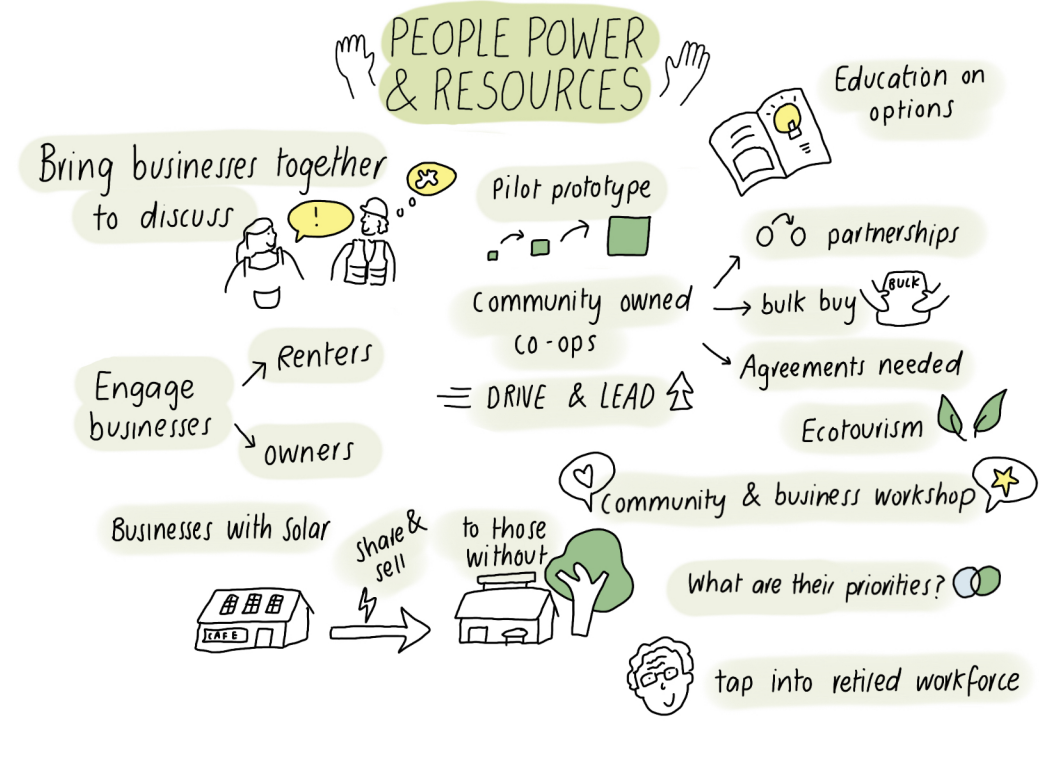 PEOPLE POWER
& RESOURCES
Education on
options
Bring businesses together
to discuss
!
Pilot prototype
partnerships
Community owned
co-ops
bulk buy
BULK
Agreements needed
DRIVE & LEAD
Engage
businesses
Renters
owners
Ecotourism
Community & business workshop
Businesses with Solar
share &
sell
to those
without
CAFE
What are their priorities?
tap into retired workforce